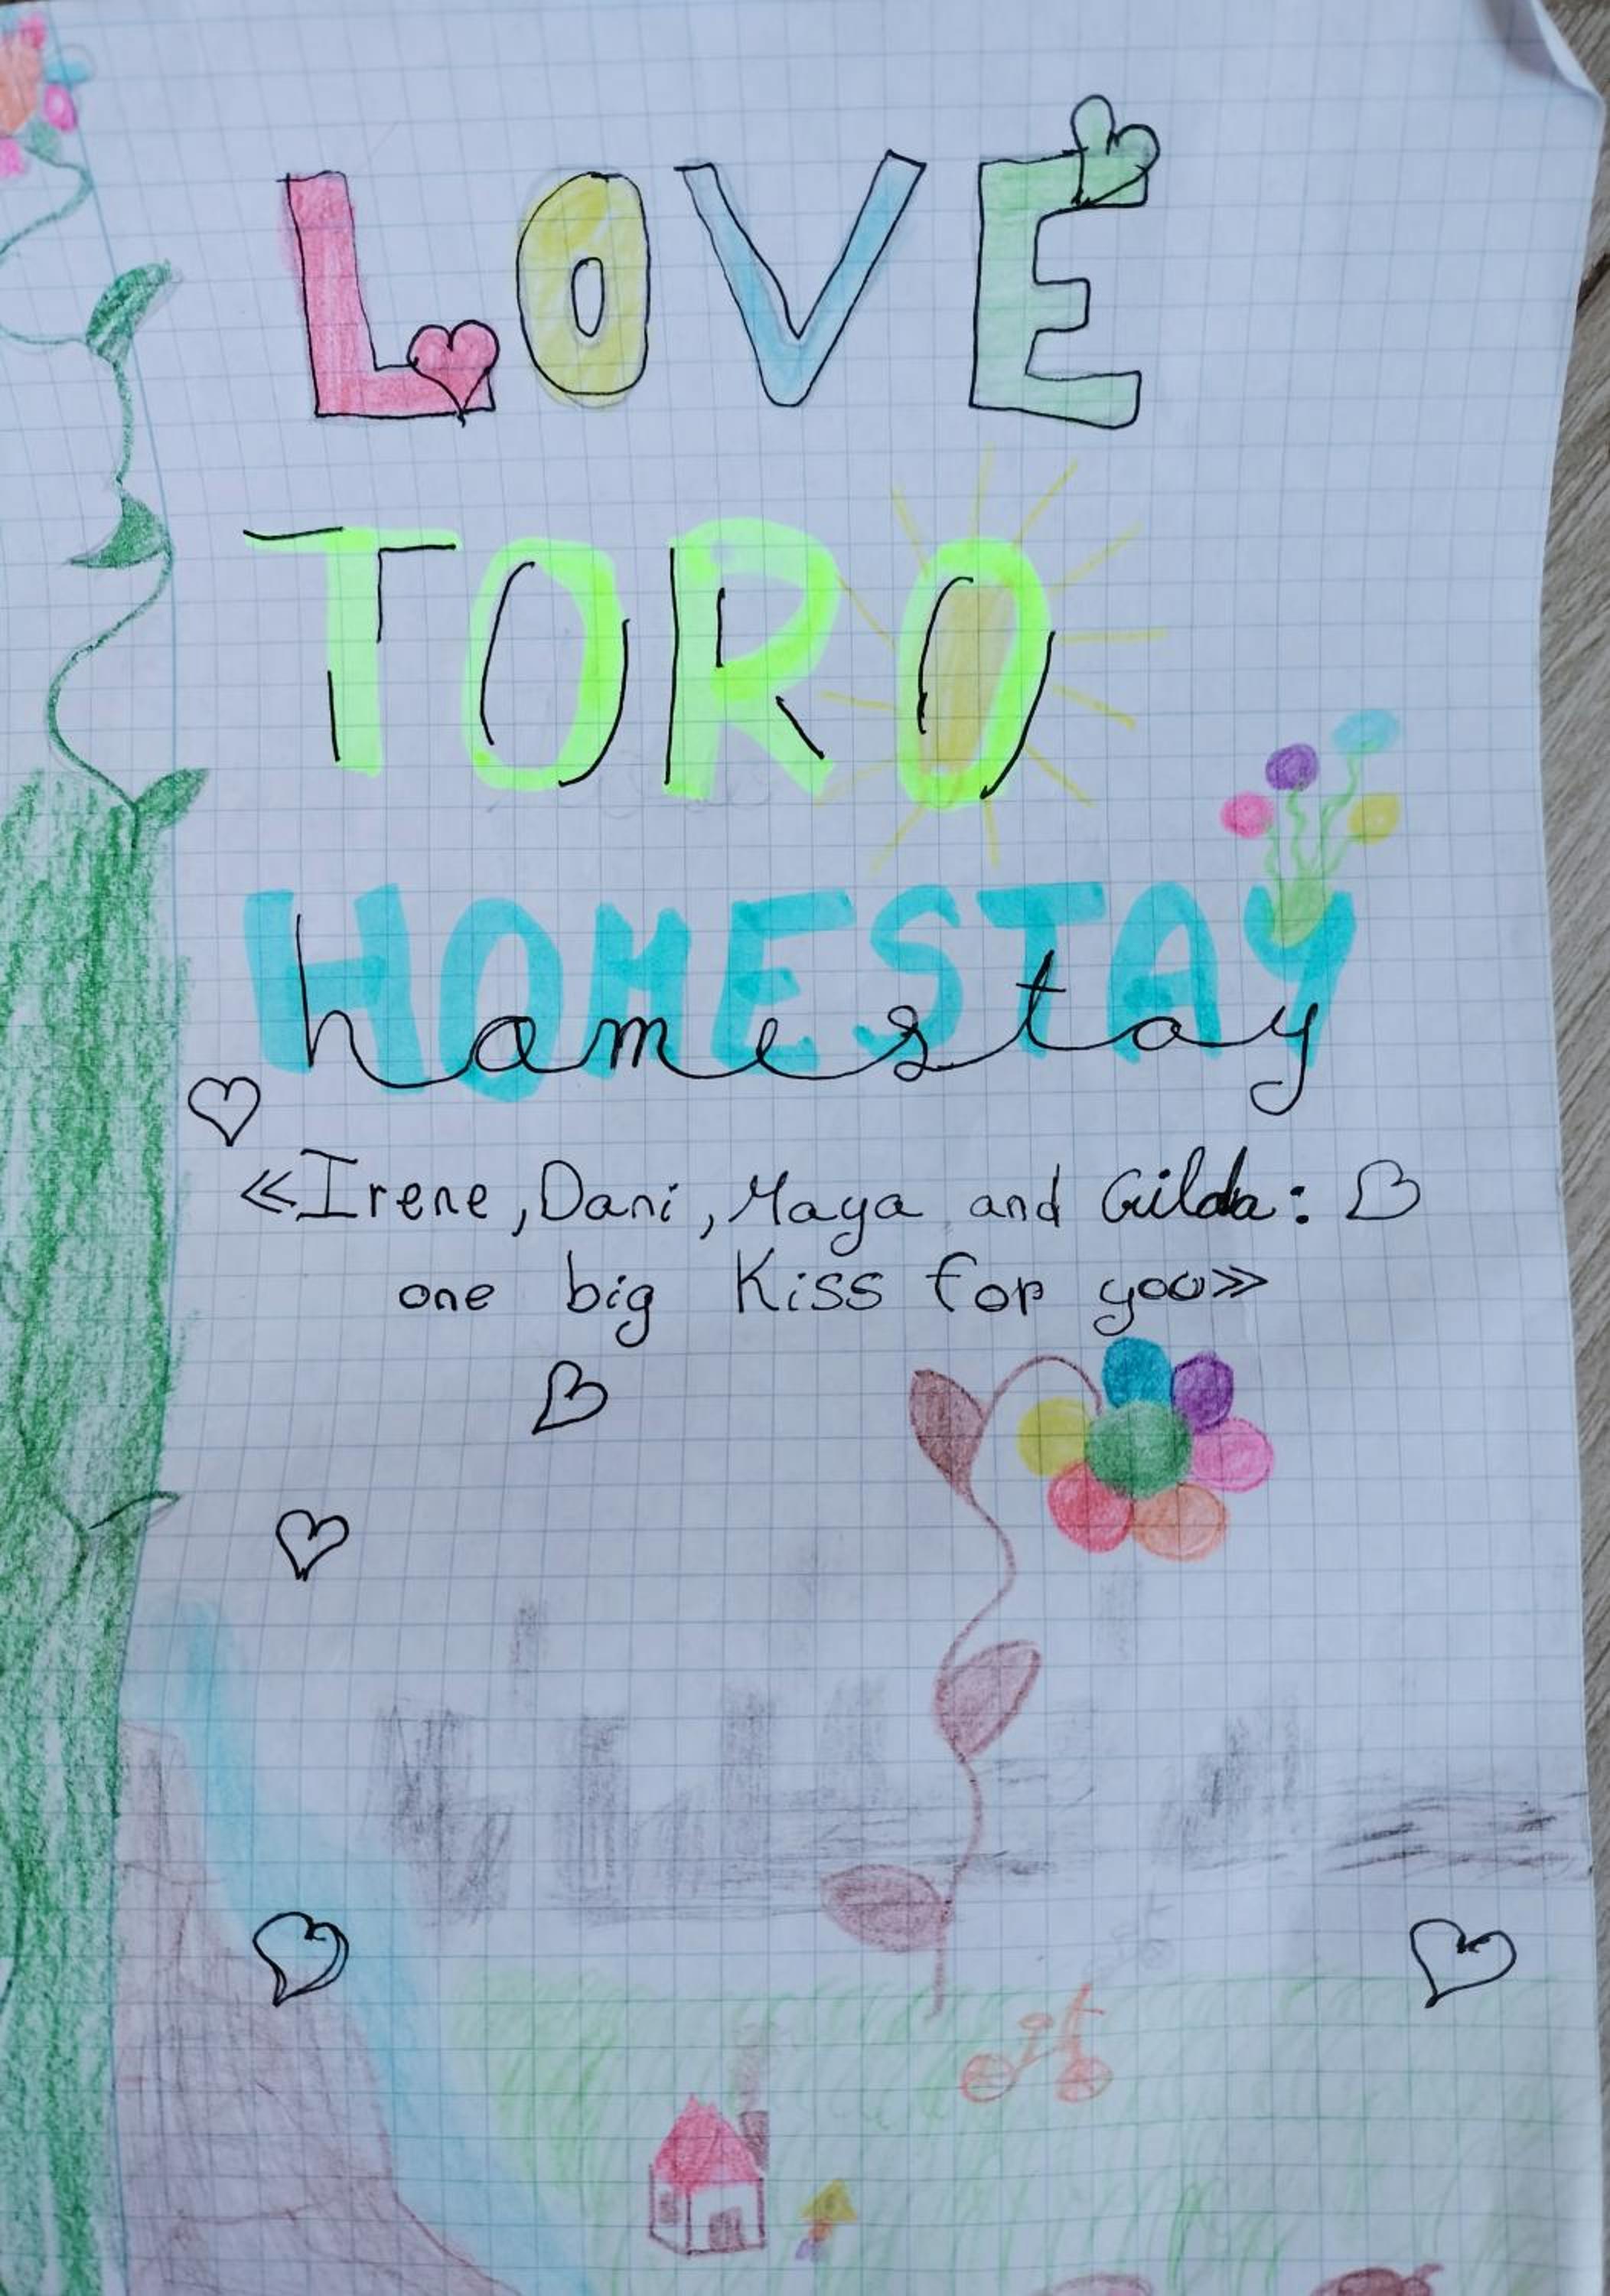 LOVE
TORO
HOMESTAY
homestay
«Irene, Dani, Maya and Gilda:
one big Kiss for you»